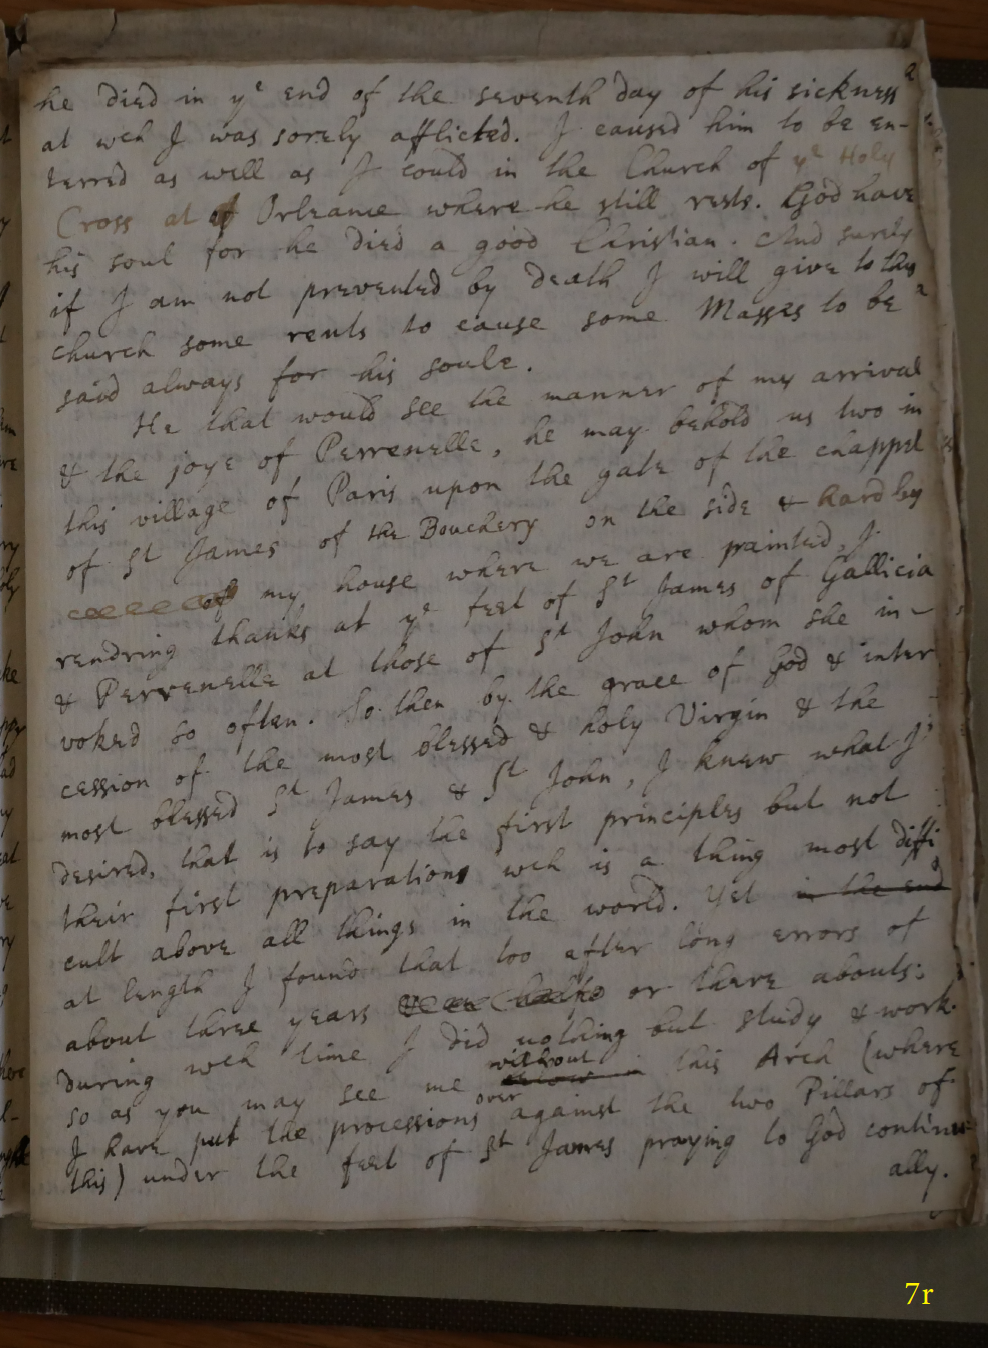 he died in yᵉ end of the seventh day of his sickness
at wch I was sorely afflicted. I caused him to be en-
terred as well as I could in the Church of yᵉ Holy
Cross at of Orleance where he still rests. God have
his soul for he died a good Christian. And surely
if I am not prevented by death I will give to this
church some rents to cause some Masses to be
said always for his soule.
He that would see the manner of my arrival
& the joye of Perrenelle, he may behold us two in
this village of Paris upon the gate of the chappel
of St James of the Bouchery on the side & hard by
of my house where we are painted, I
rendring thanks at yᵉ feet of St James of Gallicia
& Perrenelle at those of St John whom she in-
voked so often. So then by the grace of God & inter
cession of the most blessed & holy Virgin & the
most blessed St James & St John, I knew what I
desired, that is to say the first principles but not
their first preparations wch is a thing most diffi
cult above all things in the world. Yet in the end
at length I found that too after long errors of
about three years or there abouts:
during wch time I did nothing but study & work.
so as you may see me without this Arch (where
I have put the processions over against the two Pillars of
this) under the feet of St James praying to God continu-
ally.
7r